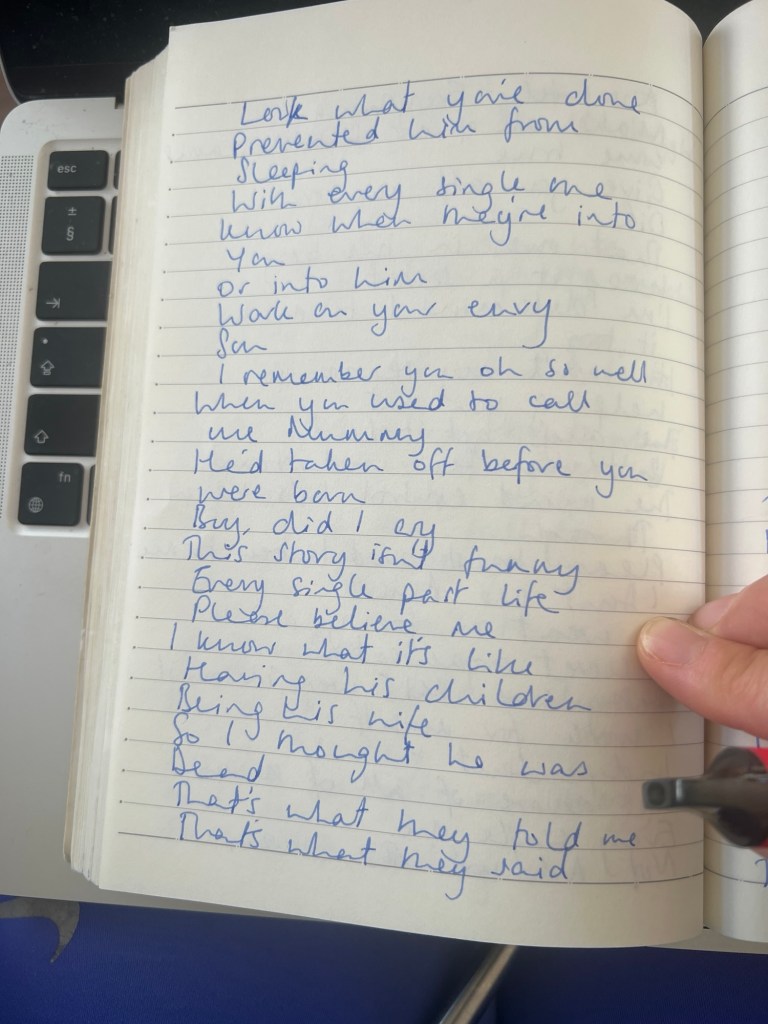 Look what you've done
Prevented him from
Sleeping
With every single one
Know when they're into
You
Or into him
Work on your envy
Son
I remember you oh so well
When you used to call
me Mummy
He'd taken off before you
were born
Boy, did I cry
This story isn't funny
Every single part life
Please believe me
I know what it's like
Having his children
Being his wife
So I thought he was
Dead
That's what they told me
That's what they said
esc
±
§
fn